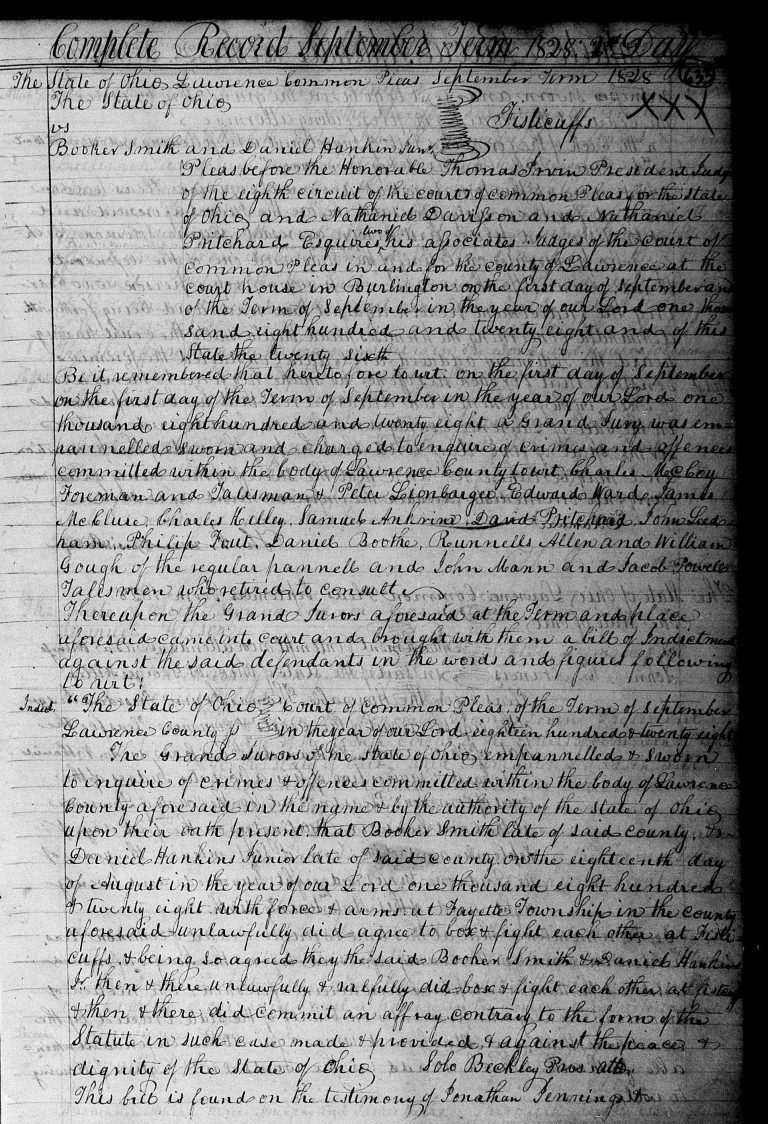 Complete Record September Term 1828. 2nd Day
The State of Ohio Lawrence Common Pleas September Term 1828 633
The State of Ohio XXX
vs Fisticuffs
Booker Smith and Daniel Hankin Junr
Pleas before the Honorable Thomas Irvin President Judge
of the eighth circuit of the court of common Pleas for the state
of Ohio and Nathaniel Davisson and Nathaniel
two of
Pritchard Esquires his associates Judges of the court of
Common Pleas in and for the county of Lawrence at the
court house in Burlington on the first day of September an
of the Term of September in the year of our Lord one thou
sand eight hundred and twenty eight and of this
State the twenty sixth
Be it remembered that heretofore to wit on the first day of September
on the first day of the Term of September in the year of our Lord one
thousand eight hundred and twenty eight a Grand Jury was em
pannelled sworn and charged to enquire of crimes and offences
committed within the body of Lawrence County to wit Charles McCoy
Foreman and Talisman & Peter Lionbarger, Edward Ward, James
McCluse, Charles Kelley, Samuel Ankrim, David Pritchard John Leed
ham, Philip Fout, Daniel Boothe, Runnells Allen and William
Gough of the regular pannell and John Mann and Jacob Powell
Talismen who retired to consult
Thereupon the Grand Jurors aforesaid at the Term and place
aforesaid came into court and brought with them a bill of Indictment
against the said defendants in the words and figures following
to wit!
Indict. "The State of Ohio Court of Common Pleas, of the Term of September
Lawrence County in the year of our Lord eighteen hundred & twenty eight
The Grand Jurors of the state of Ohio empannelled & sworn
to enquire of crimes & offences committed within the body of Lawrence
County aforesaid in the name & by the authority of the state of Ohio
upon their oath present, that Booker Smith late of said county, &
Daniel Hankins Junior late of said county on the eighteenth day
of August in the year of our Lord one thousand eight hundred
& twenty eight with force & arms at Fayette Township in the county
aforesaid unlawfully did agree to box & fight each other at Fisti
cuffs, & being so agreed they the said Booker Smith & Daniel Hankins
Jr. then & there unlawfully & wilfully did box & fight each other at fisty
& then & there did commit an affray contrary to the form of the
Statute in such case made & provided & against the peace &
dignity of the State of Ohio Solo Beckley Pros atto.
This bill is found on the testimony of Jonathan Jennings &